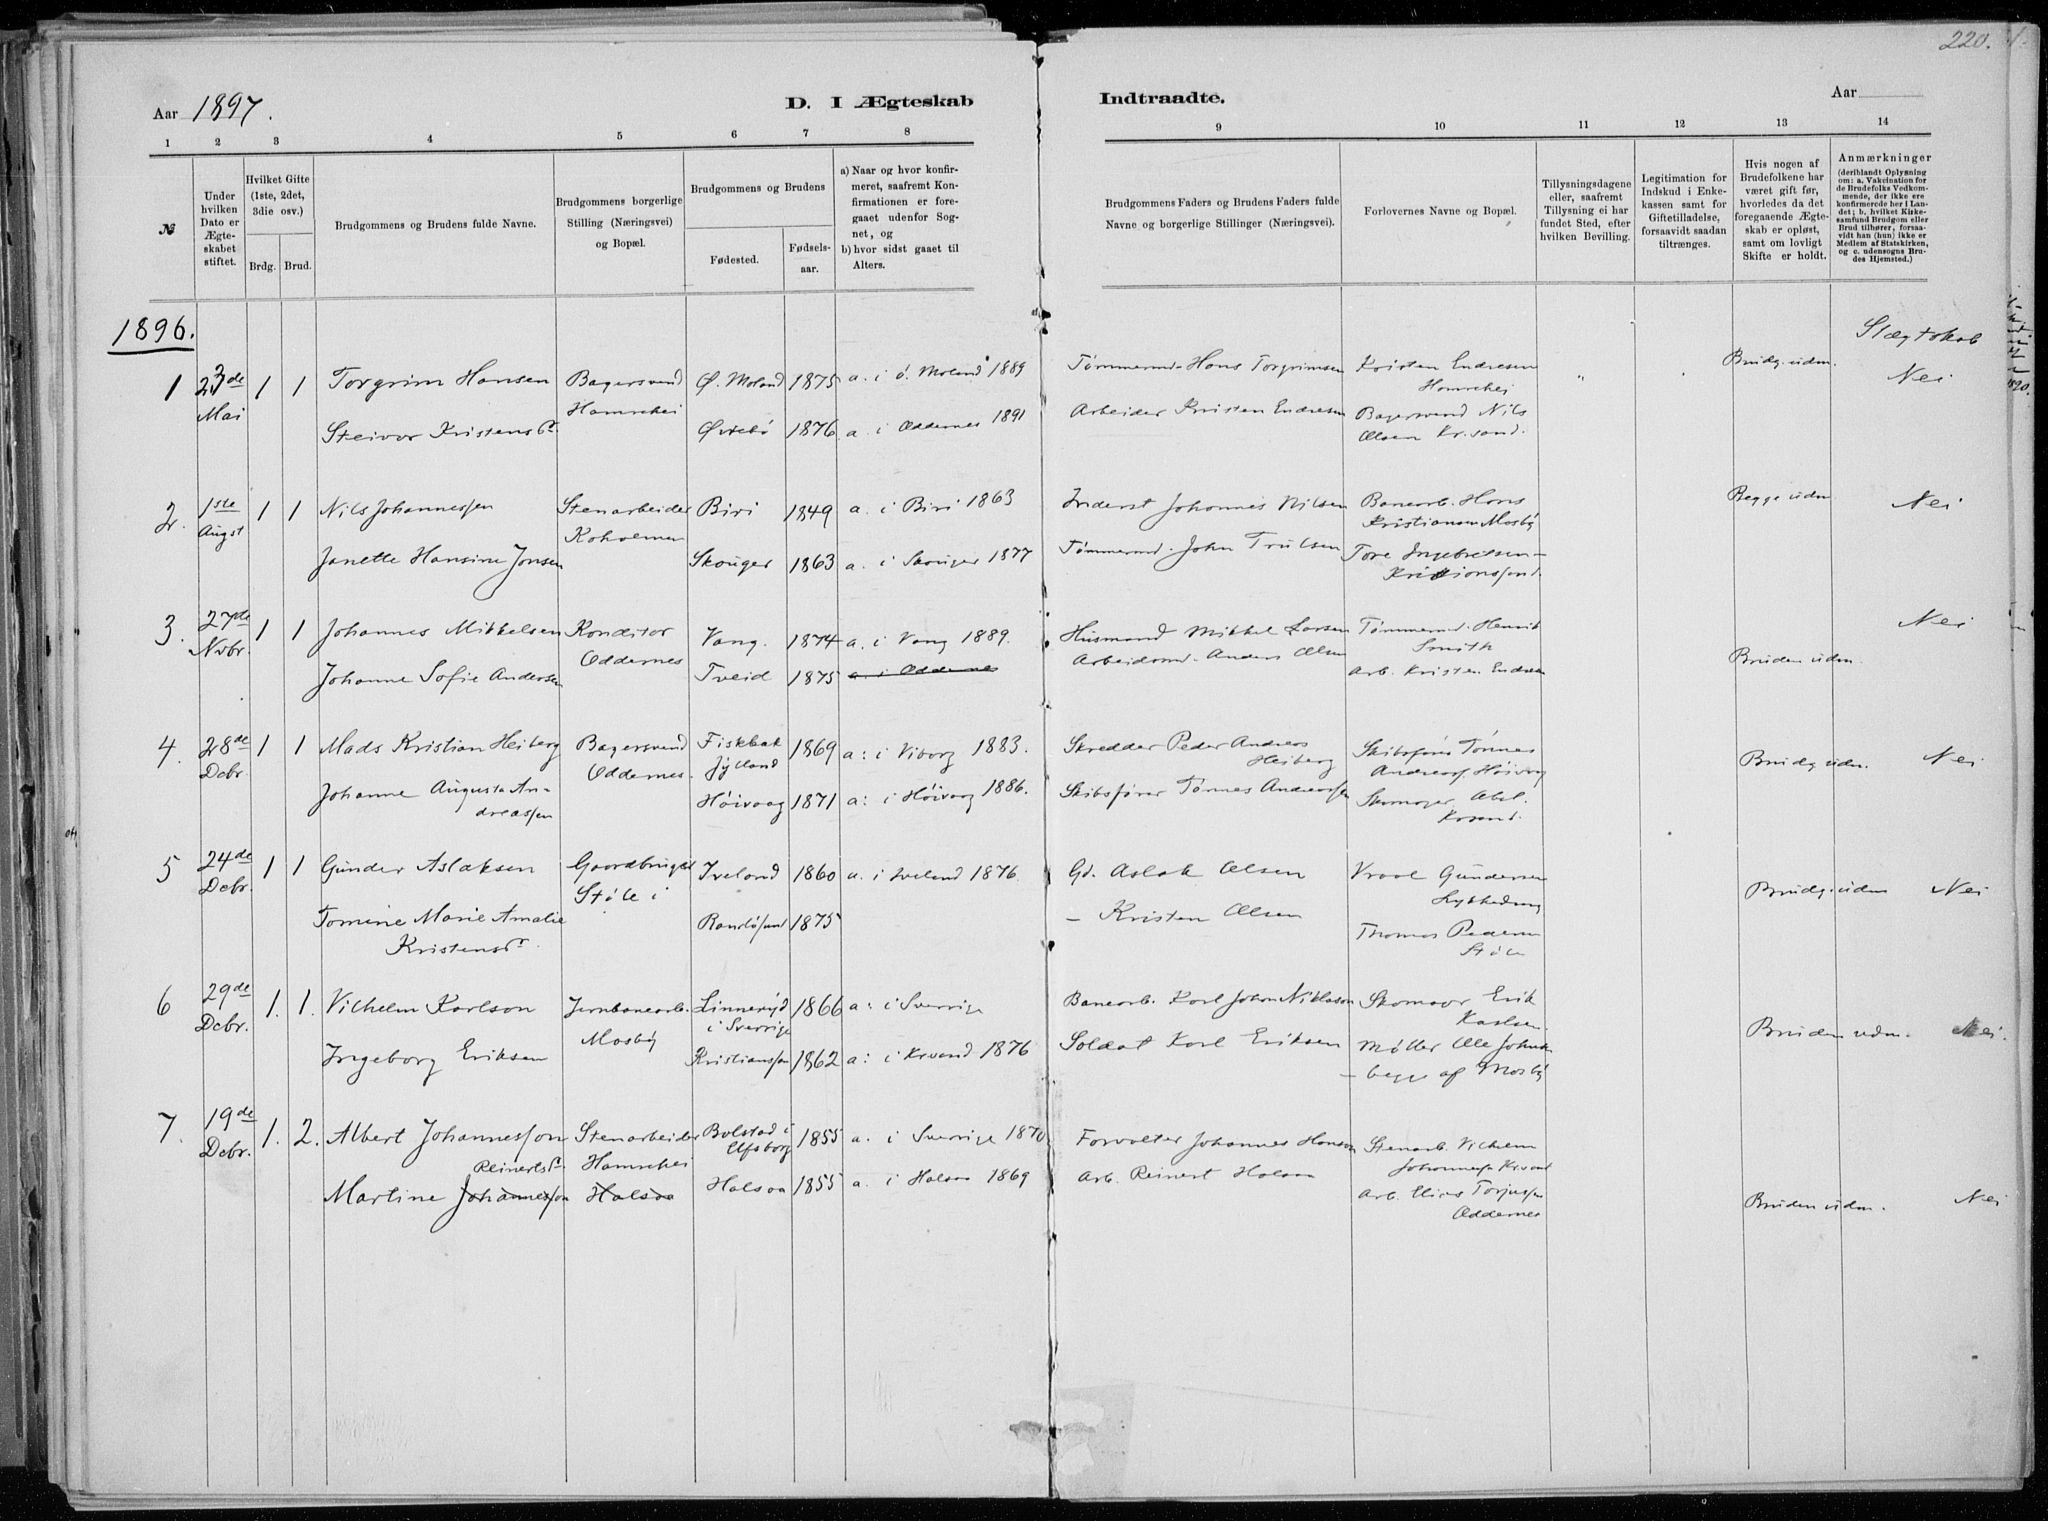 220.
Aar 1897.
D. I Ægteskab
Indtraadte.
Aar
1 2 3 4 5 6 7 8 9 10 11 12 13 14
№
Under hvilken Dato er Ægteskabet stiftet.
Hvilket Gifte (1ste, 2det, 3die osv.)
Brdg. Brud.
Brudgommens og Brudens fulde Navne.
Brudgommens borgerlige Stilling (Næringsvei) og Bopæl.
Brudgommens og Brudens
Fødested. Fødselsaar.
a) Naar og hvor konfirmeret, saafremt Konfirmationen er foregaaet udenfor Sognet, og
b) hvor sidst gaaet til Alters.
Brudgommens Faders og Brudens Faders fulde Navne og borgerlige Stillinger (Næringsvei).
Forlovernes Navne og Bopæl.
Tillysningsdagene eller, saafremt Tillysning ei har fundet Sted, efter hvilken Bevilling.
Legitimation for Indskud i Enkekassen samt for Giftetilladelse, forsaavidt saadan tiltrænges.
Hvis nogen af Brudefolkene har været gift før, hvorledes da det foregaaende Ægteskab er opløst, samt om lovligt Skifte er holdt.
Anmærkninger (deriblandt Oplysning om: a. Vakcination for de Brudefolks Vedkommende, der ikke ere konfirmerede her i Landet; b, hvilket Kirkesamfund Brudgom eller Brud tilhører, forsaavidt han (hun) ikke er Medlem af Statskirken, og c. udensogns Brudes Hjemsted.)
1896.
Slægtskab
1 23de Mai 1 1 Torgrim Hansen Bagersvend Hamrehei Ø. Moland 1875 a. i Ø. Moland 1889 Tømmermd. Hans Torgrimsen Kristen Endresen Hamrehei Brudg. udm. Nei
Steivor Kristensdr. Øvrebø 1876 a. i Oddernes 1891 Arbeider Kristen Endresen Bagersvend Nils Olsen Kr.sand.
2. 1ste Augst 1 1 Nils Johannessen Stenarbeider Koholmen Biri 1849 a. i Biri 1863 Inderst Johannes Nilsen Banearb. Hans Kristiansen Mosby Begge udm. Nei
Janette Hansine Jonsen Skouger 1863 a. i Skouger 1877 Tømmermd. John Trulsen Tore Ingebretsen Kristianssand.
3. 27de Nvbr. 1 1 Johannes Mikkelsen Konditor Oddernes Vang. 1874 a. i Vang 1889. Husmand Mikkel Larsen Tømmermd. Henrik Smith Nei
Johanne Sofie Andersen Tveid 1875 a. i Oddernes Arbeidsmd. Anders Olsen Arb. Kristen Endresen Bruden udm.
4. 28de Dcbr. 1 1 Mads Kristian Heiberg Bagersvend Oddernes. Fiskbæk Jylland 1869 a: i Viborg 1883. Skredder Peder Andreas Heiberg Skibsfører Tønnes Andreass. Høivaag Brudg. udm. Nei
Johanne Augusta Andreassen Høivaag 1871 a: i Høivaag 1886. Skibsfører Tønnes Andreassen Skomager Abel. Krsand.
5 24de Dcbr. 1 1 Gunder Aslaksen Gaardbruger Støle i Iveland 1860 a. i Iveland 1876. Gd. Aslak Olsen Vraal Gundersen Brudg. udm Nei
Tomine Marie Amalie Kristensdr. Randøsund 1875 - Kristen Olsen Thomas Pedersen Støle
6 29de Dcbr. 1. 1. Vilhelm Karlson Jernbanearb. Mosby Linneryd i Sverrige 1866 a: i Sverrige Banearb. Karl Johan Niklason Skomager Erik Karlsen Bruden udm. Nei.
Ingeborg Eriksen Kristianssan 1862 a: i Krsand 1876 Soldat Karl Eriksen Møller Ole Johnsen - begge af Mosby
7. 19de Dcbr. 1. 2. Albert Johannesson Stenarbeider Hamrehei Bolstad i Elfsborg 1855 a. i Sverrige 1870 Forvalter Johannes Hanson Stenarb. Vilhelm Johanness. Krsand
Reinertsdr.
Martine Johannesson Halsaa Halsaa 1855 a. i Halsaa 1869 Arb. Reinert Halsaa Arb. Elias Torjussen Oddernes Bruden udm. Nei